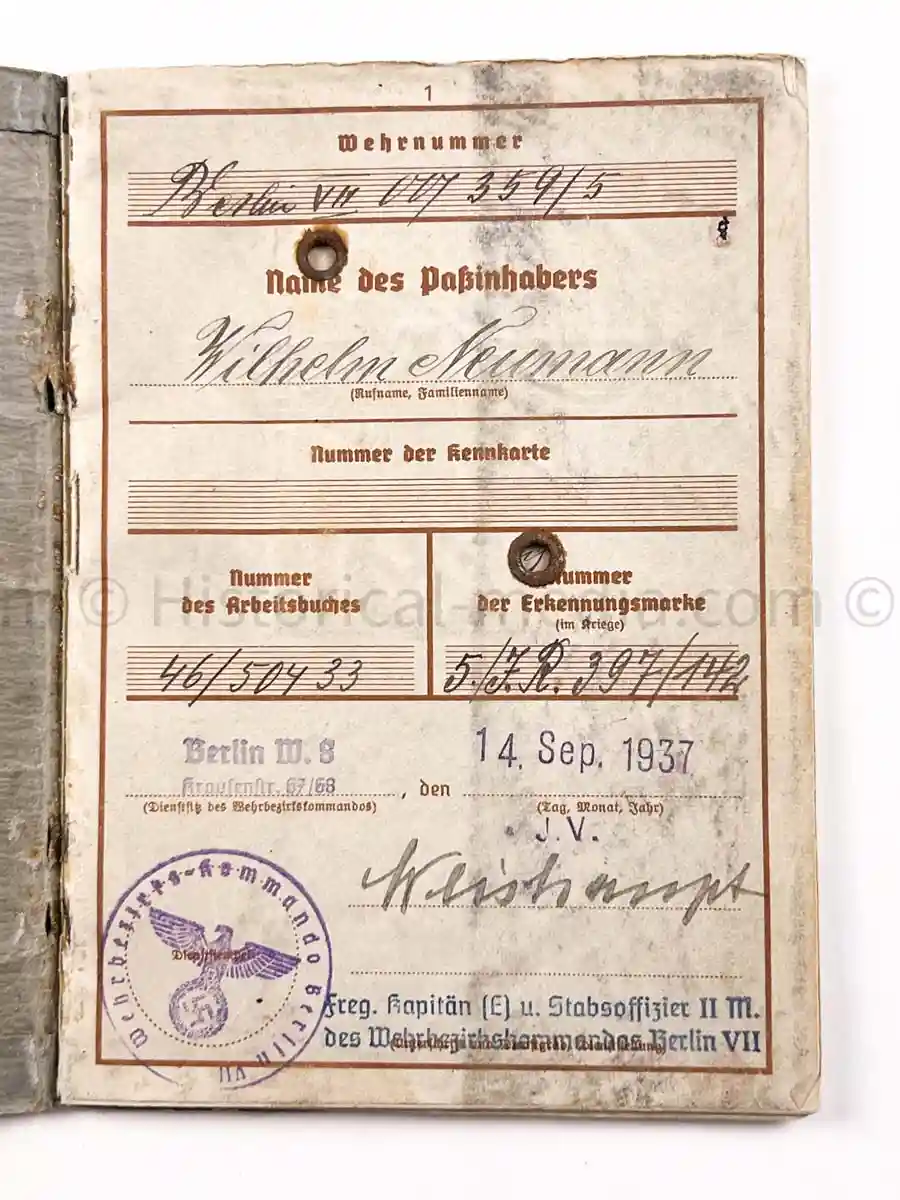 1
Wehrnummer
Berlin VII 007 359/5
Name des Paßinhabers
Wilhelm Neumann
(Rufname, Familienname)
Nummer der Kennkarte
Nummer
des Arbeitsbuches
Nummer
der Erkennungsmarke
(im Kriege)
46/504 33
5./J.R. 397/142
Berlin W. 8
Krausenstr. 67/68
, den
14. Sep. 1937
(Dienstsitz des Wehrbezirkskommandos)
(Tag, Monat, Jahr)
J.V.
Weishaupt
Wehrbezirks-Kommando Berlin VII
Dienststempel
Freg. Kapitän (E) u. Stabsoffizier II M.
des Wehrbezirkskommandos Berlin VII